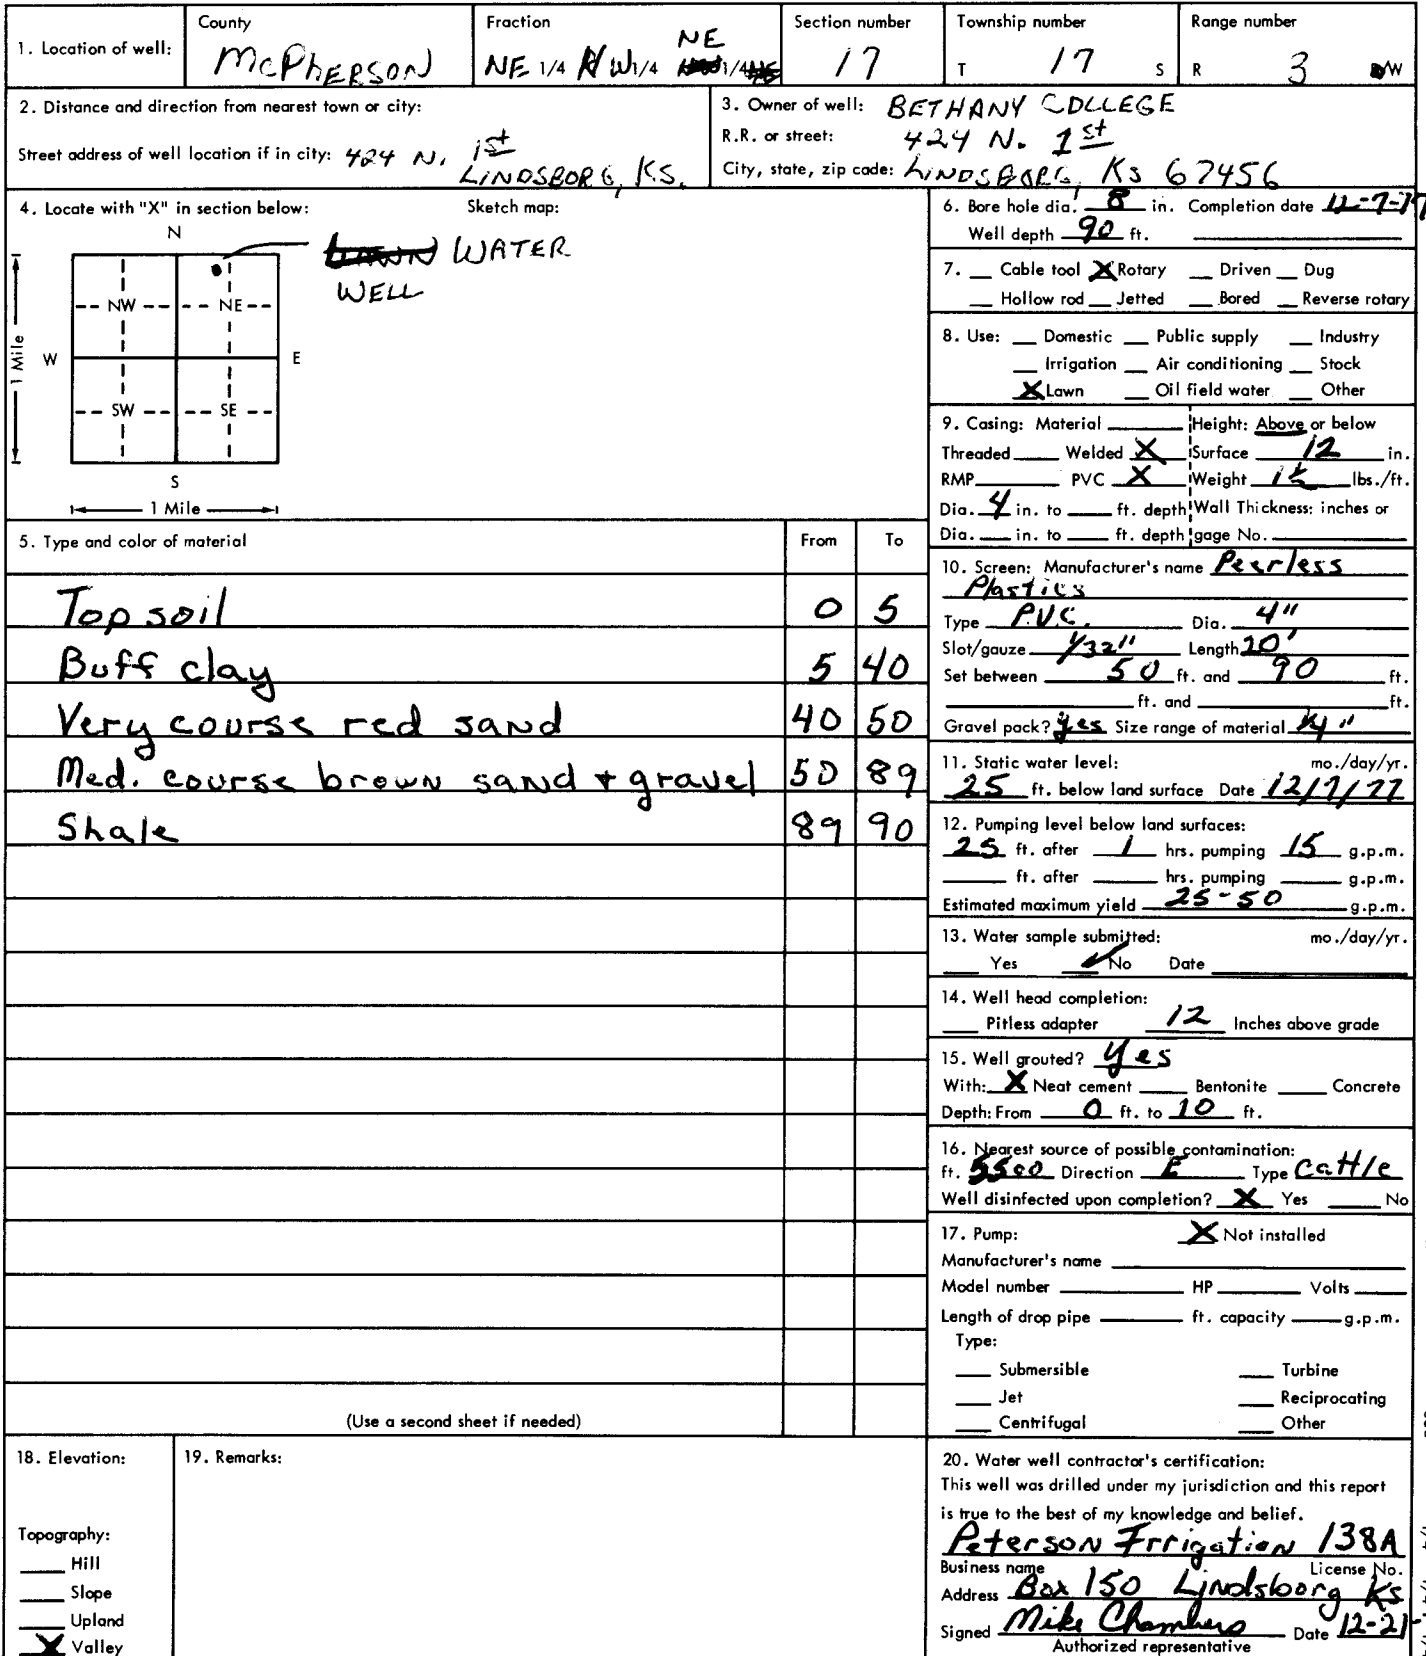 1. Location of well:
County
McPHERSON
Fraction
NE
NE 1/4 NW1/4 1/4
Section number
17
Township number
T 17 S
Range number
R 3 W
2. Distance and direction from nearest town or city:
Street address of well location if in city: 424 N. 1st
LINDSBORG, KS.
3. Owner of well: BETHANY COLLEGE
R.R. or street: 424 N. 1st
City, state, zip code: LINDSBORG, KS 67456
4. Locate with "X" in section below:
Sketch map:
N
WATER
WELL
NW NE
W E
1 Mile
SW SE
S
1 Mile
5. Type and color of material From To
Topsoil 0 5
Buff clay 5 40
Very course red sand 40 50
Med. course brown sand + gravel 50 89
Shale 89 90
(Use a second sheet if needed)
6. Bore hole dia. 8 in. Completion date 12-7-77
Well depth 90 ft.
7. Cable tool X Rotary Driven Dug
Hollow rod Jetted Bored Reverse rotary
8. Use: Domestic Public supply Industry
Irrigation Air conditioning Stock
X Lawn Oil field water Other
9. Casing: Material Height: Above or below
Threaded Welded X Surface 12 in.
RMP PVC X Weight lbs./ft.
Dia. 4 in. to ft. depth Wall Thickness: inches or
Dia. in. to ft. depth gage No.
10. Screen: Manufacturer's name Peerless
Plastics
Type P.V.C. Dia. 4"
Slot/gauze 1/32" Length 20'
Set between 50 ft. and 90 ft.
ft. and ft.
Gravel pack? yes Size range of material 1/4"
11. Static water level: mo./day/yr.
25 ft. below land surface Date 12/7/77
12. Pumping level below land surfaces:
25 ft. after 1 hrs. pumping 15 g.p.m.
ft. after hrs. pumping g.p.m.
Estimated maximum yield 25-50 g.p.m.
13. Water sample submitted: mo./day/yr.
Yes ✓ No Date
14. Well head completion:
Pitless adapter 12 Inches above grade
15. Well grouted? yes
With: X Neat cement Bentonite Concrete
Depth: From 0 ft. to 10 ft.
16. Nearest source of possible contamination:
ft. 5500 Direction E Type Cattle
Well disinfected upon completion? X Yes No
17. Pump: X Not installed
Manufacturer's name
Model number HP Volts
Length of drop pipe ft. capacity g.p.m.
Type:
Submersible Turbine
Jet Reciprocating
Centrifugal Other
18. Elevation:
Topography:
Hill
Slope
Upland
X Valley
19. Remarks:
20. Water well contractor's certification:
This well was drilled under my jurisdiction and this report
is true to the best of my knowledge and belief.
Peterson Irrigation 138A
Business name License No.
Address Box 150 Lindsborg Ks
Signed Mike Chambers Date 12-21-
Authorized representative